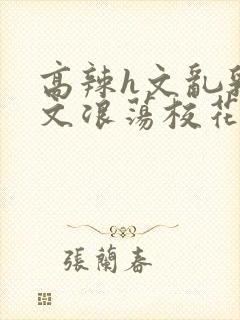 高辣h文乱
文浪荡校花
張蘭春